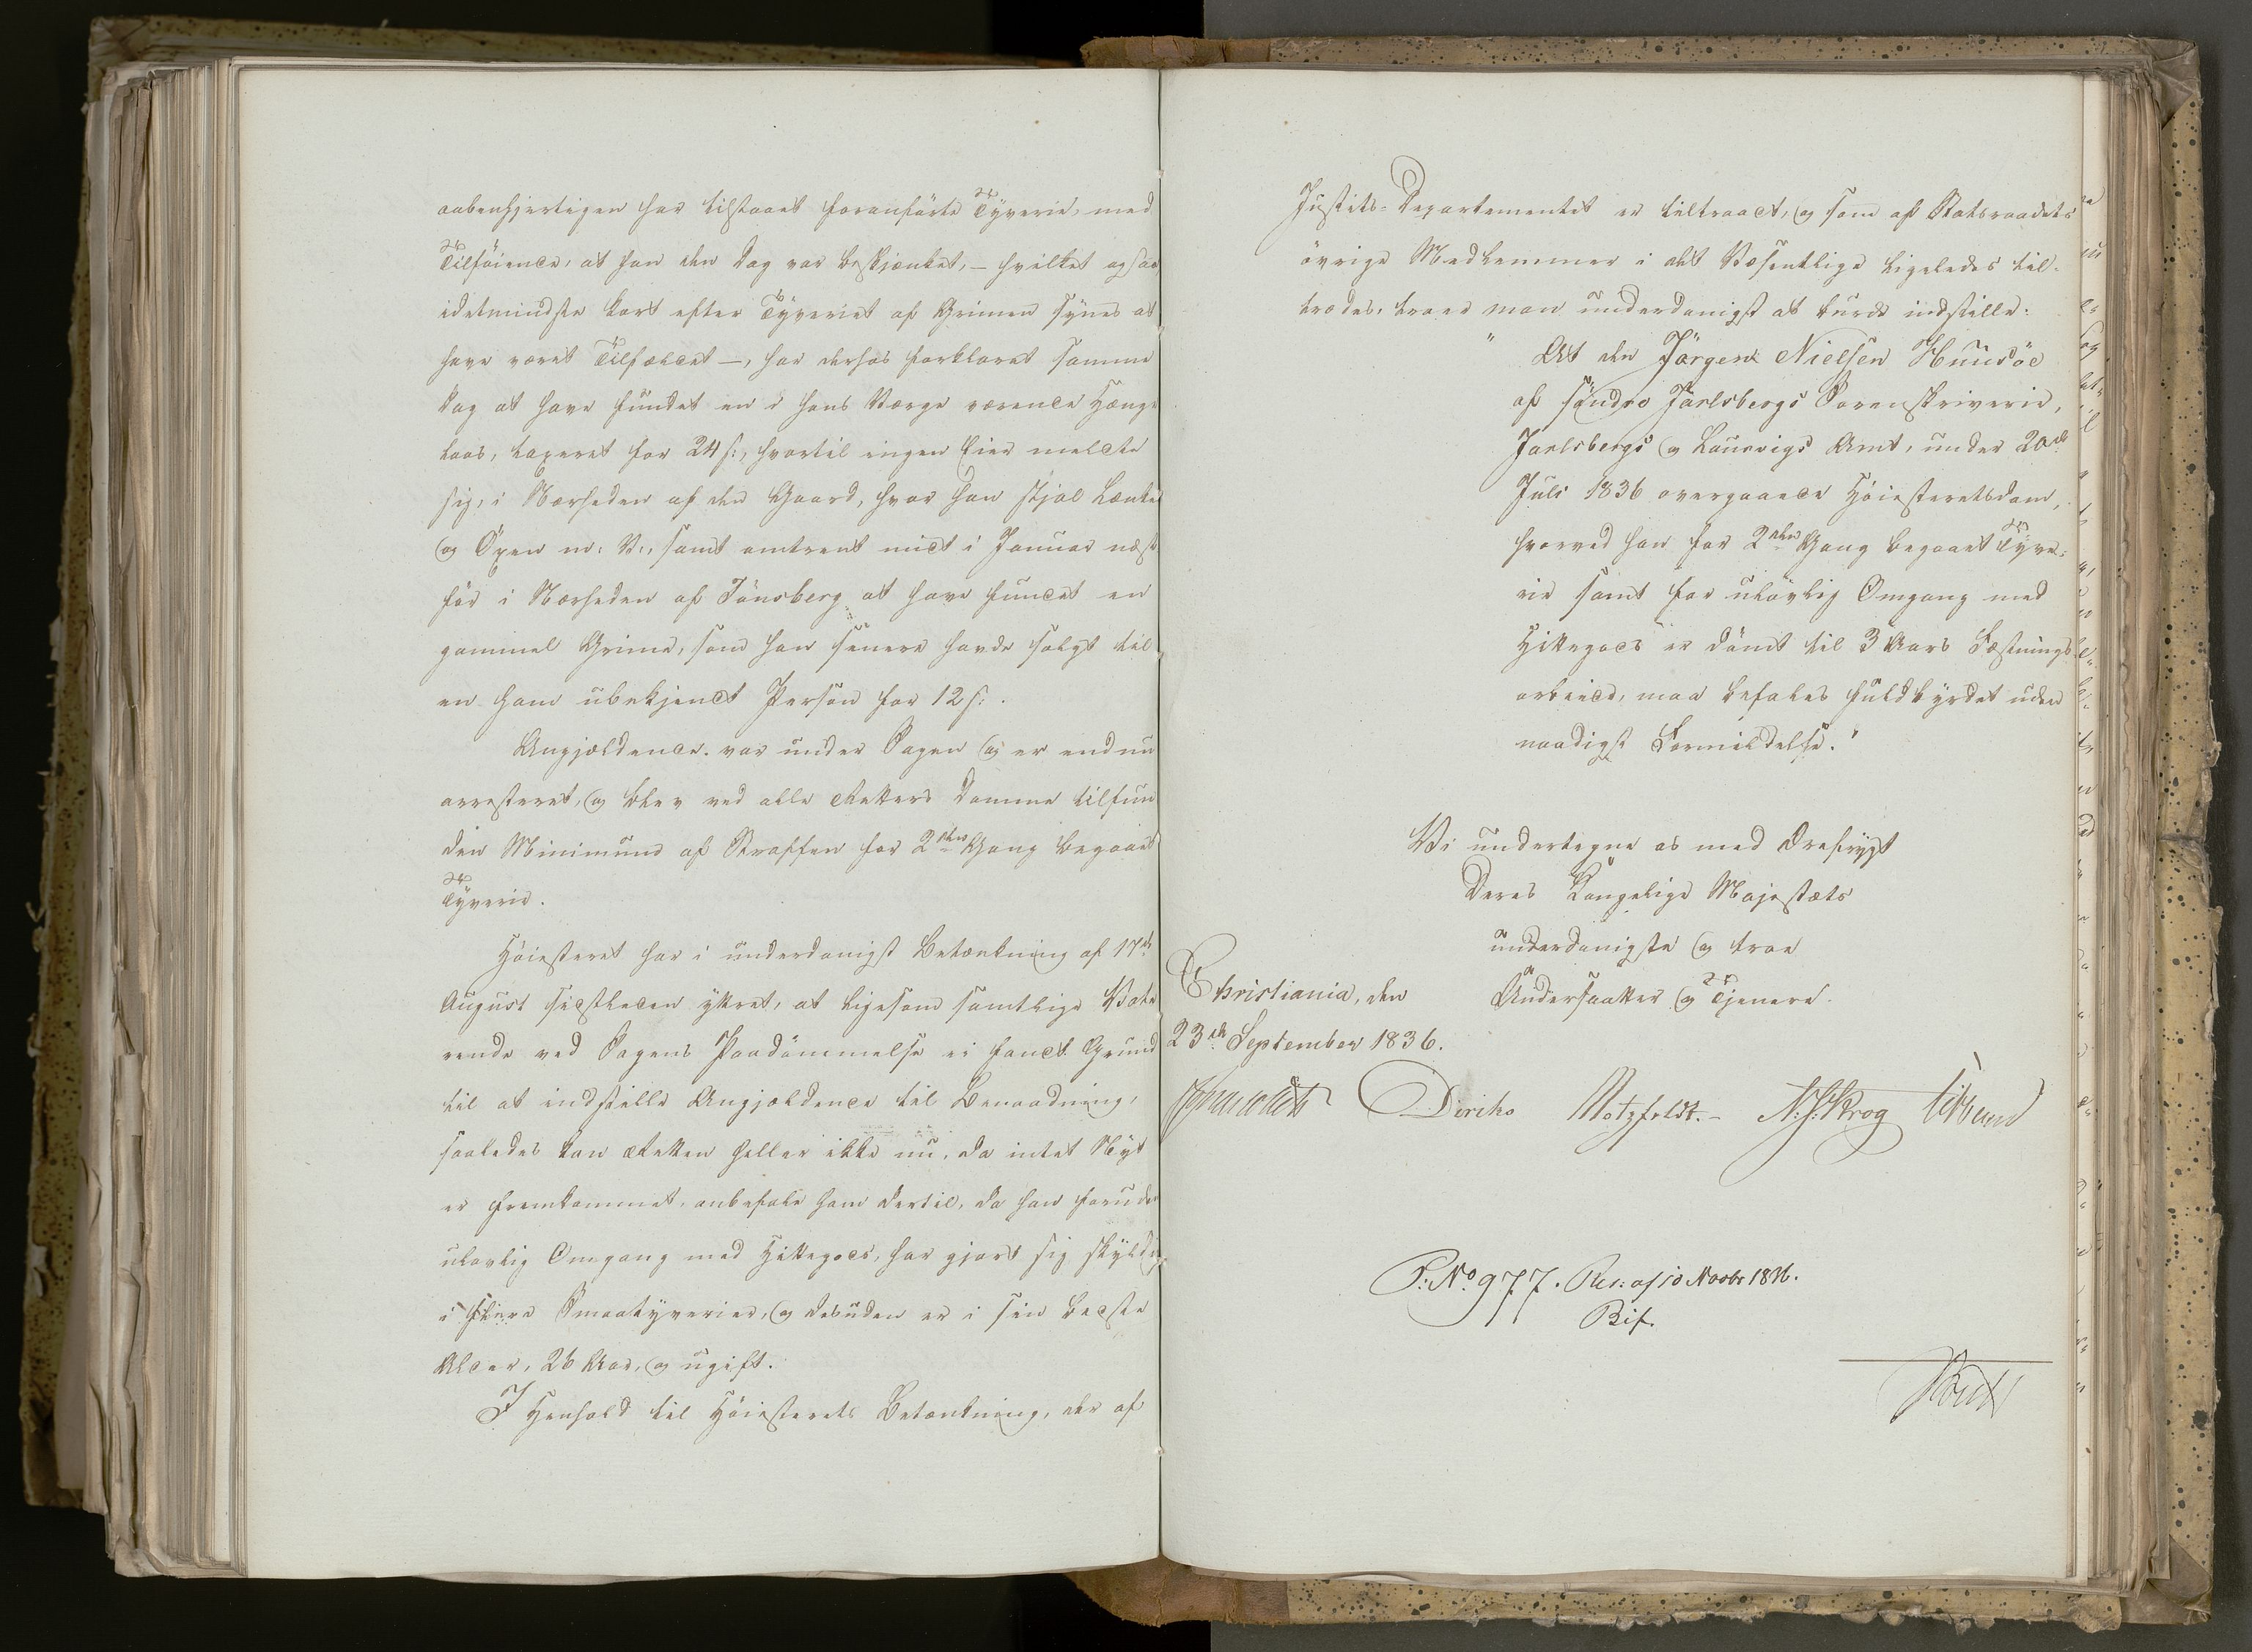 aabenhjertigen har tilstaaet foranførte Tyverie, med
Tilføiende, at han den Dag var beskjænket, – hvilket ogsaa
idetmindste kort efter Tyveriet af Grimen synes at
have været Tilfældet –, har derhos forklaret samme
Dag at have fundet en i hans Værge værende Hænge
laas, taxeret for 24 s:, hvortil ingen Eier meldte
sig, i Nærheden af den Gaard, hvor han stjal Lænken
og Öxen m: V:, samt omtrent midt i Januar næst
før i Nærheden af Tönsberg at have fundet en
gammel Grime, som han senere havde solgt til
en ham ubekjendt Person for 12 s:.
Angjældende var under Sagen og er endnu
arresteret, og blev ved alle Retters Domme tilfun
den Minimum af Straffen for 2den Gang begaaet
Tyverie.
Höiesteret har i underdanigst Betænkning af 17de
August sidstleden yttret, at ligesom samtlige Vote
rende ved Sagens Paadömmelse ei fandt Grund
til at indstille Angjældende til Benaadning,
saaledes kan Retten heller ikke nu, da intet Nyt
er fremkommet, anbefale ham dertil, da han foruden
ulovlig Omgang med Hittegods, har gjort sig skyldig
i flere Smaatyverier, og desuden er i sin bedste
Alder, 26 Aar, og ugift.
I Henhold til Höiesterets Betænkning, der af
Justits-Departementet er tiltraadt, og som af Statsraadets
övrige Medlemmer i det Væsentlige ligeledes til-
trædes, troer man underdanigst at burde indstille:
" At den Jörgen Nielsen Huusöe
af söndre Jarlsbergs Sorenskriverie,
Jarlsbergs og Laurvigs Amt, under 20de
Juli 1836 overgaaede Höiesteretsdom,
hvorved han for 2den Gang begaaet Tyve-
rie samt for ulovlig Omgang med
Hittegods er dömt til 3 Aars Fæstnings
arbeide, maa befales fuldbyrdet uden
naadigst Formildelse."
Vi undertegne os med Ærefrygt
Deres Kongelige Majestæts
underdanigste og troe
Undersaatter og Tjenere.
Christiania, den
23de September 1836.
Diriks Motzfeldt.- N: J: Krog
P: No. 977. Res: af 10 Novbr 1836.
Bif.